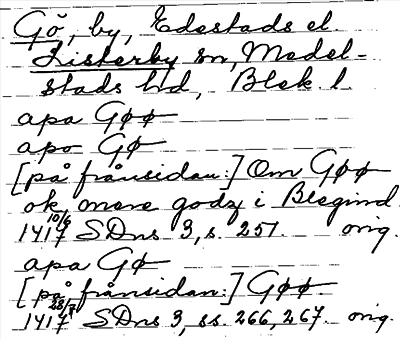 Gö, by, Edestads el.
Listerby sn, Medel-
stads hd, Blek. l.
apa Gøø
apo Gø
[på frånsidan:] Om Gøø
ok mere godz i Blegind
1417 10/6 SDns 3, s. 257. orig.
apa Gø
[på frånsidan:] Gøø.
1417 28/7 SDns 3, ss. 266, 267. orig.